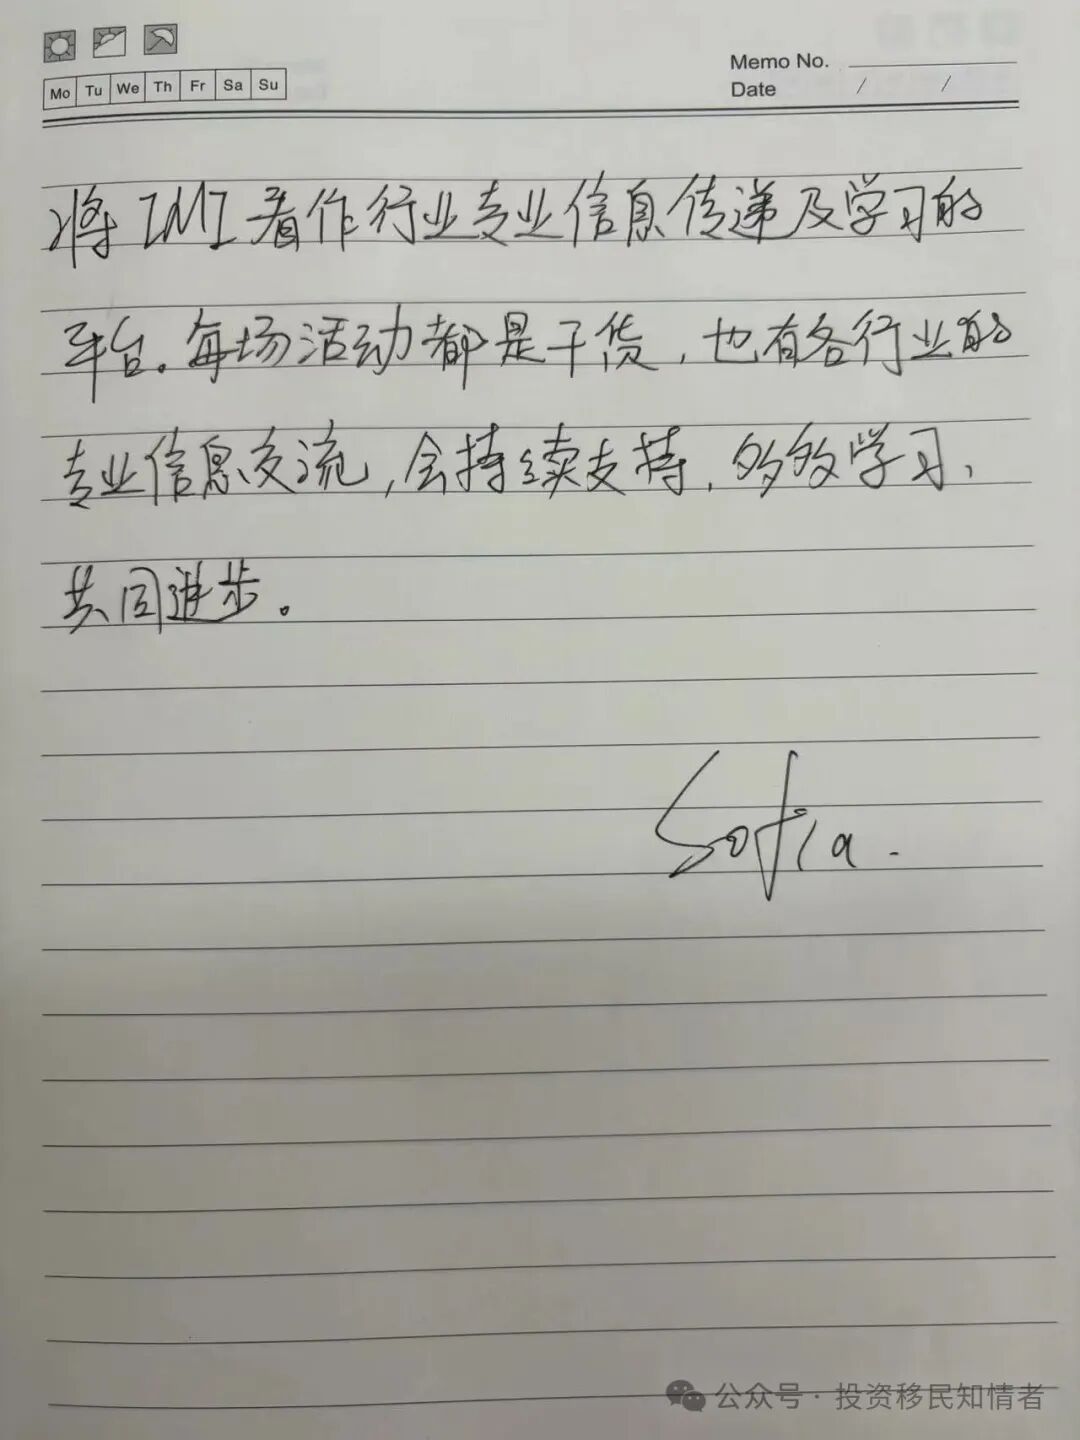 Mo Tu We Th Fr Sa Su
Memo No.
Date / /
将IMI看作行业专业信息传递及学习的
平台。每场活动都是干货，也有各行业的
专业信息交流，会持续支持，多多学习、
共同进步。
Sofia.
公众号·投资移民知情者